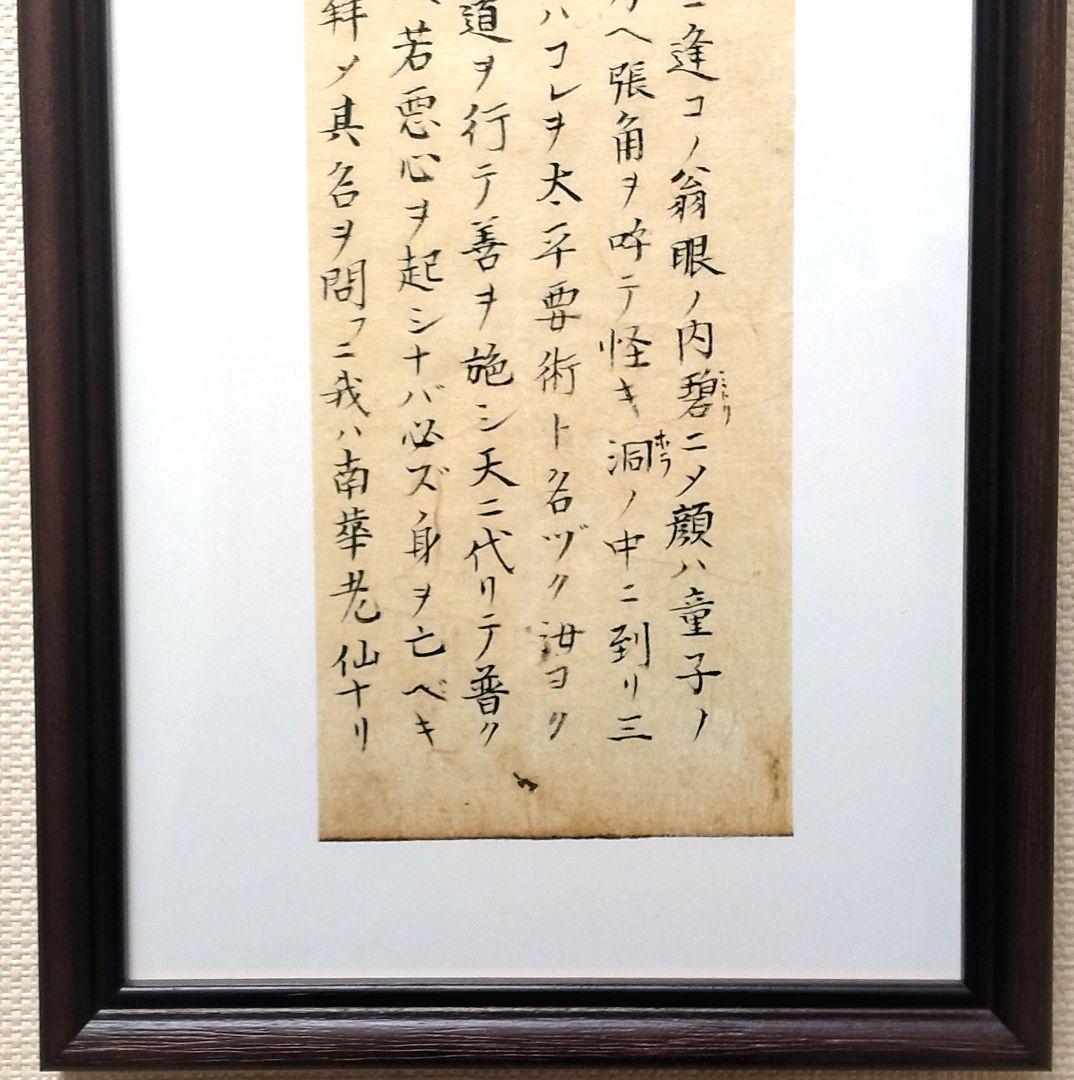 ニ逢コノ翁眼ノ内碧ニメ顔ハ童子ノ
ミトリ
へ張角ヲ吟テ怪キ洞ノ中ニ到リ三
ホラ
ハコレヲ太平要術ト名ヅク汝ヨク
道ヲ行テ善ヲ施シ天ニ代リテ普ク
若悪心ヲ起シナバ必ズ身ヲ亡ベキ
拜メ其名ヲ問フニ我ハ南華老仙ナリ